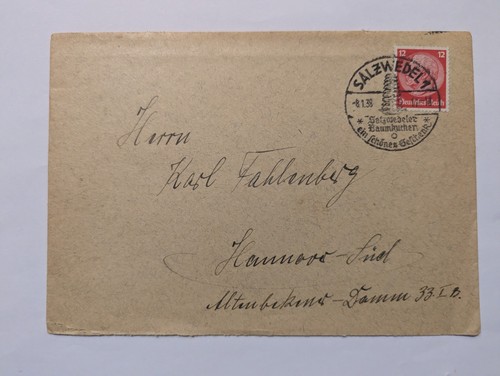 12 12
Deutsches Reich
SALZWEDEL 1
-8.1.38
Salzwedeler
Baumkuchen
* ein schönes Geschenk *
Herrn
Karl Fahlenberg
Hannover-Süd
Altenbekener-Damm 33 I B.